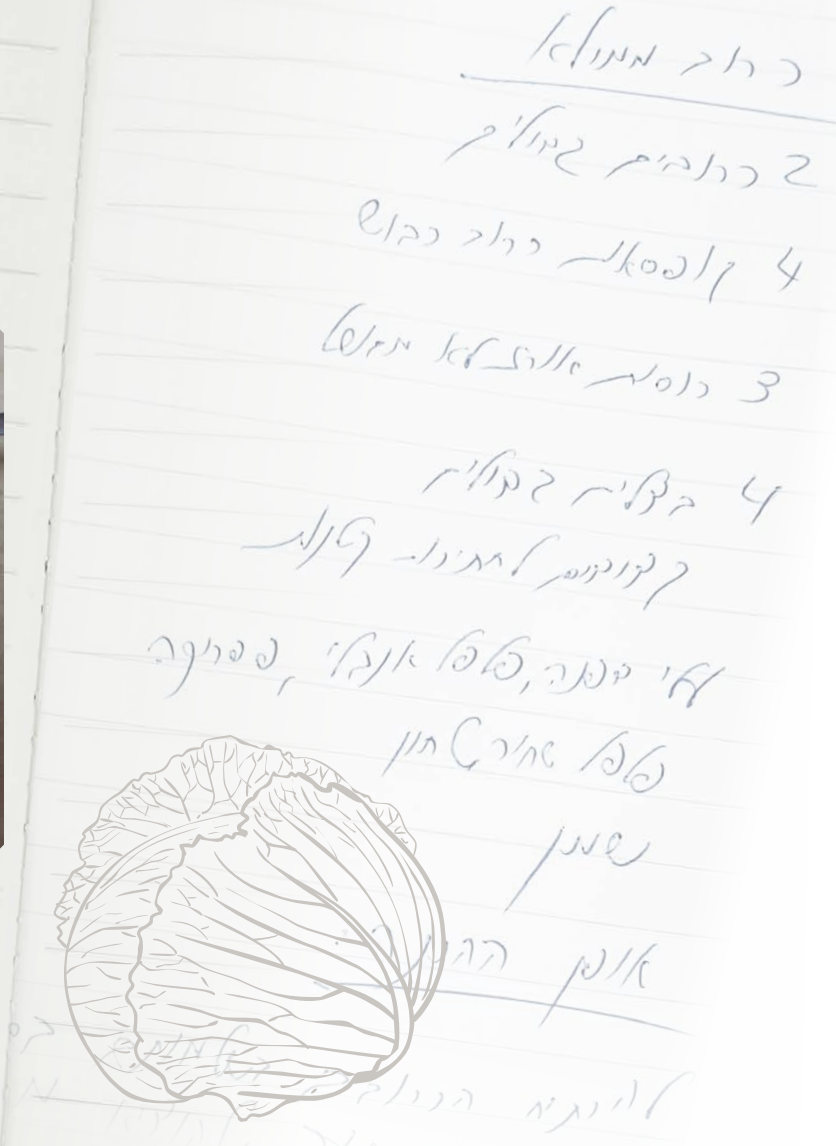 כרוב ממולא
2 כרובים גדולים
4 קופסאות כרוב כבוש
3 כוסות אורז לא מבושל
4 בצלים גדולים
קצוצים לחתיכות קטנות
עלי דפנה, פלפל אנגלי, פפריקה
פלפל שחור טחון
שמן
אופן ההכנה:
להרתיח הכרוב בשלמותו